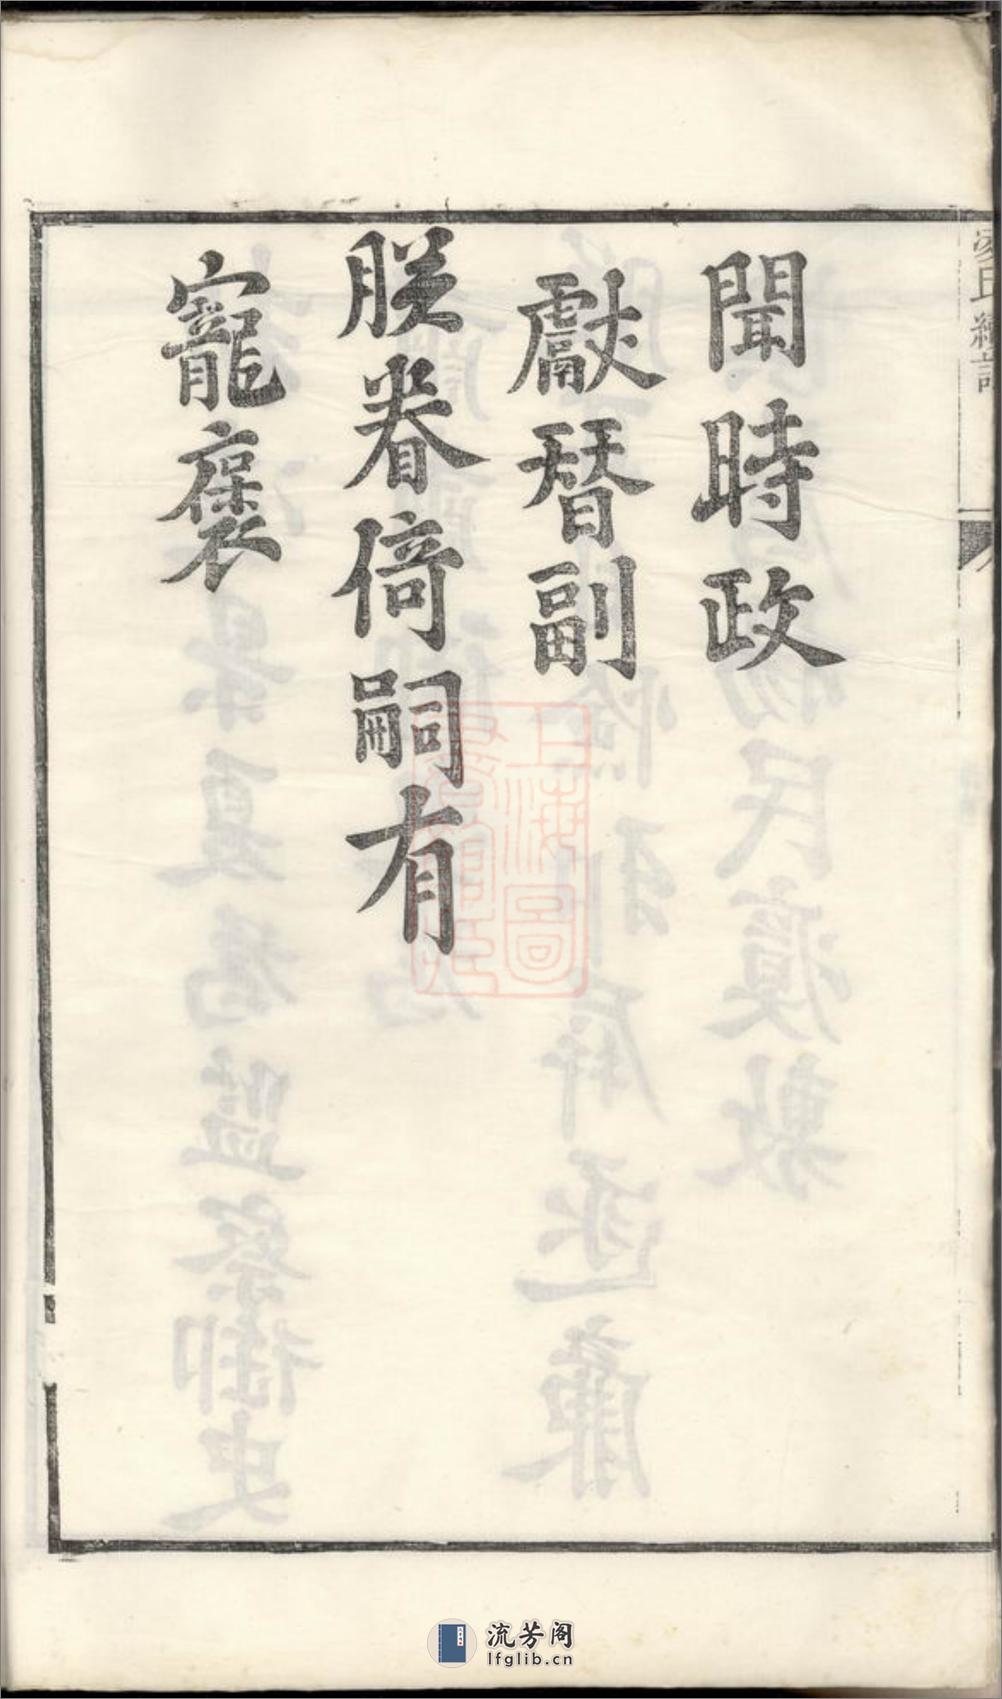 聞時政
獻替副
朕眷倚嗣有
寵褒
流芳阁
lfglib.cn